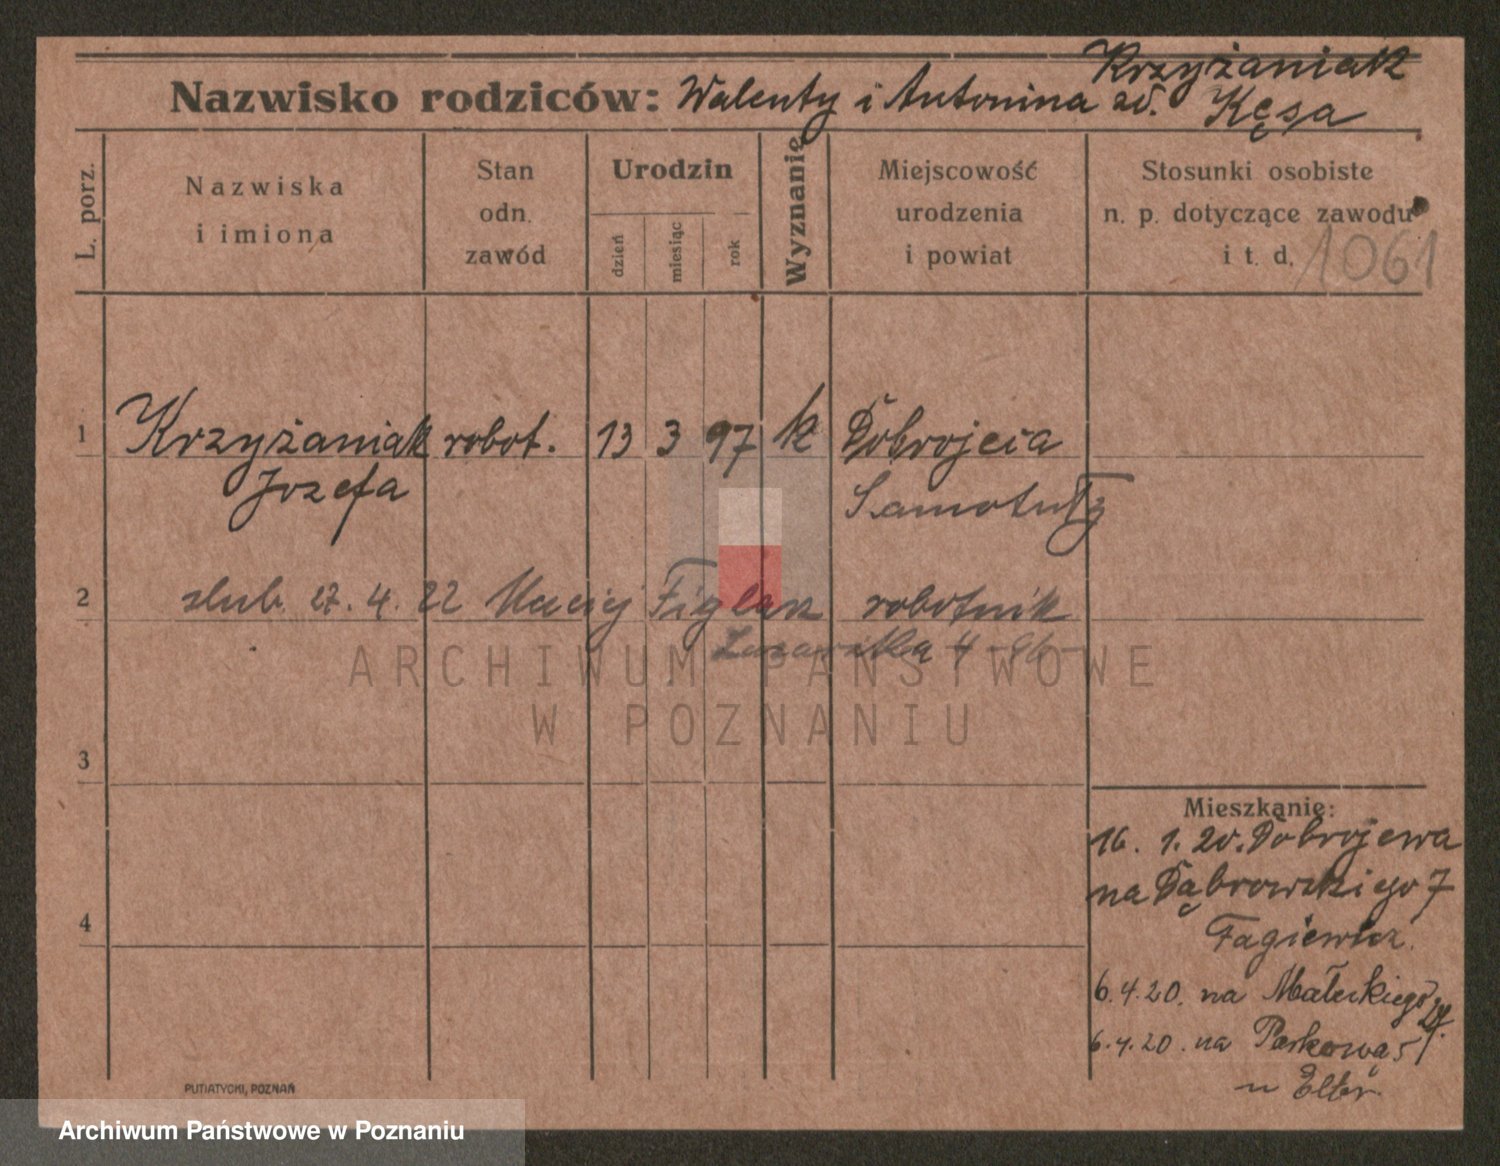 Krzyżaniak
Nazwisko rodziców: Walenty i Antonina zd. Kęsa
L. porz.
Nazwiska
i imiona
Stan
odn.
zawód
Urodzin
dzień
miesiąc
rok
Wyznanie
Miejscowość
urodzenia
i powiat
Stosunki osobiste
n. p. dotyczące zawodu
i t. d.
1061
1 Krzyżaniak robot. 13 3 97 k Dobrojecia
Jozefa Samotuły
2 slub 27. 4. 22 Maciej Figlarz robotnik
4
ARCHIWUM PAŃSTWOWE
W POZNANIU
3
Mieszkanie:
16. 1. 20. Dobrojewa
na Dąbrowskiego 7
Fagiewicz.
4
6.4.20. na Małeckiego
6.4.20. na Parkowa 5
u
PUTIATYCKI, POZNAŃ
Archiwum Państwowe w Poznaniu